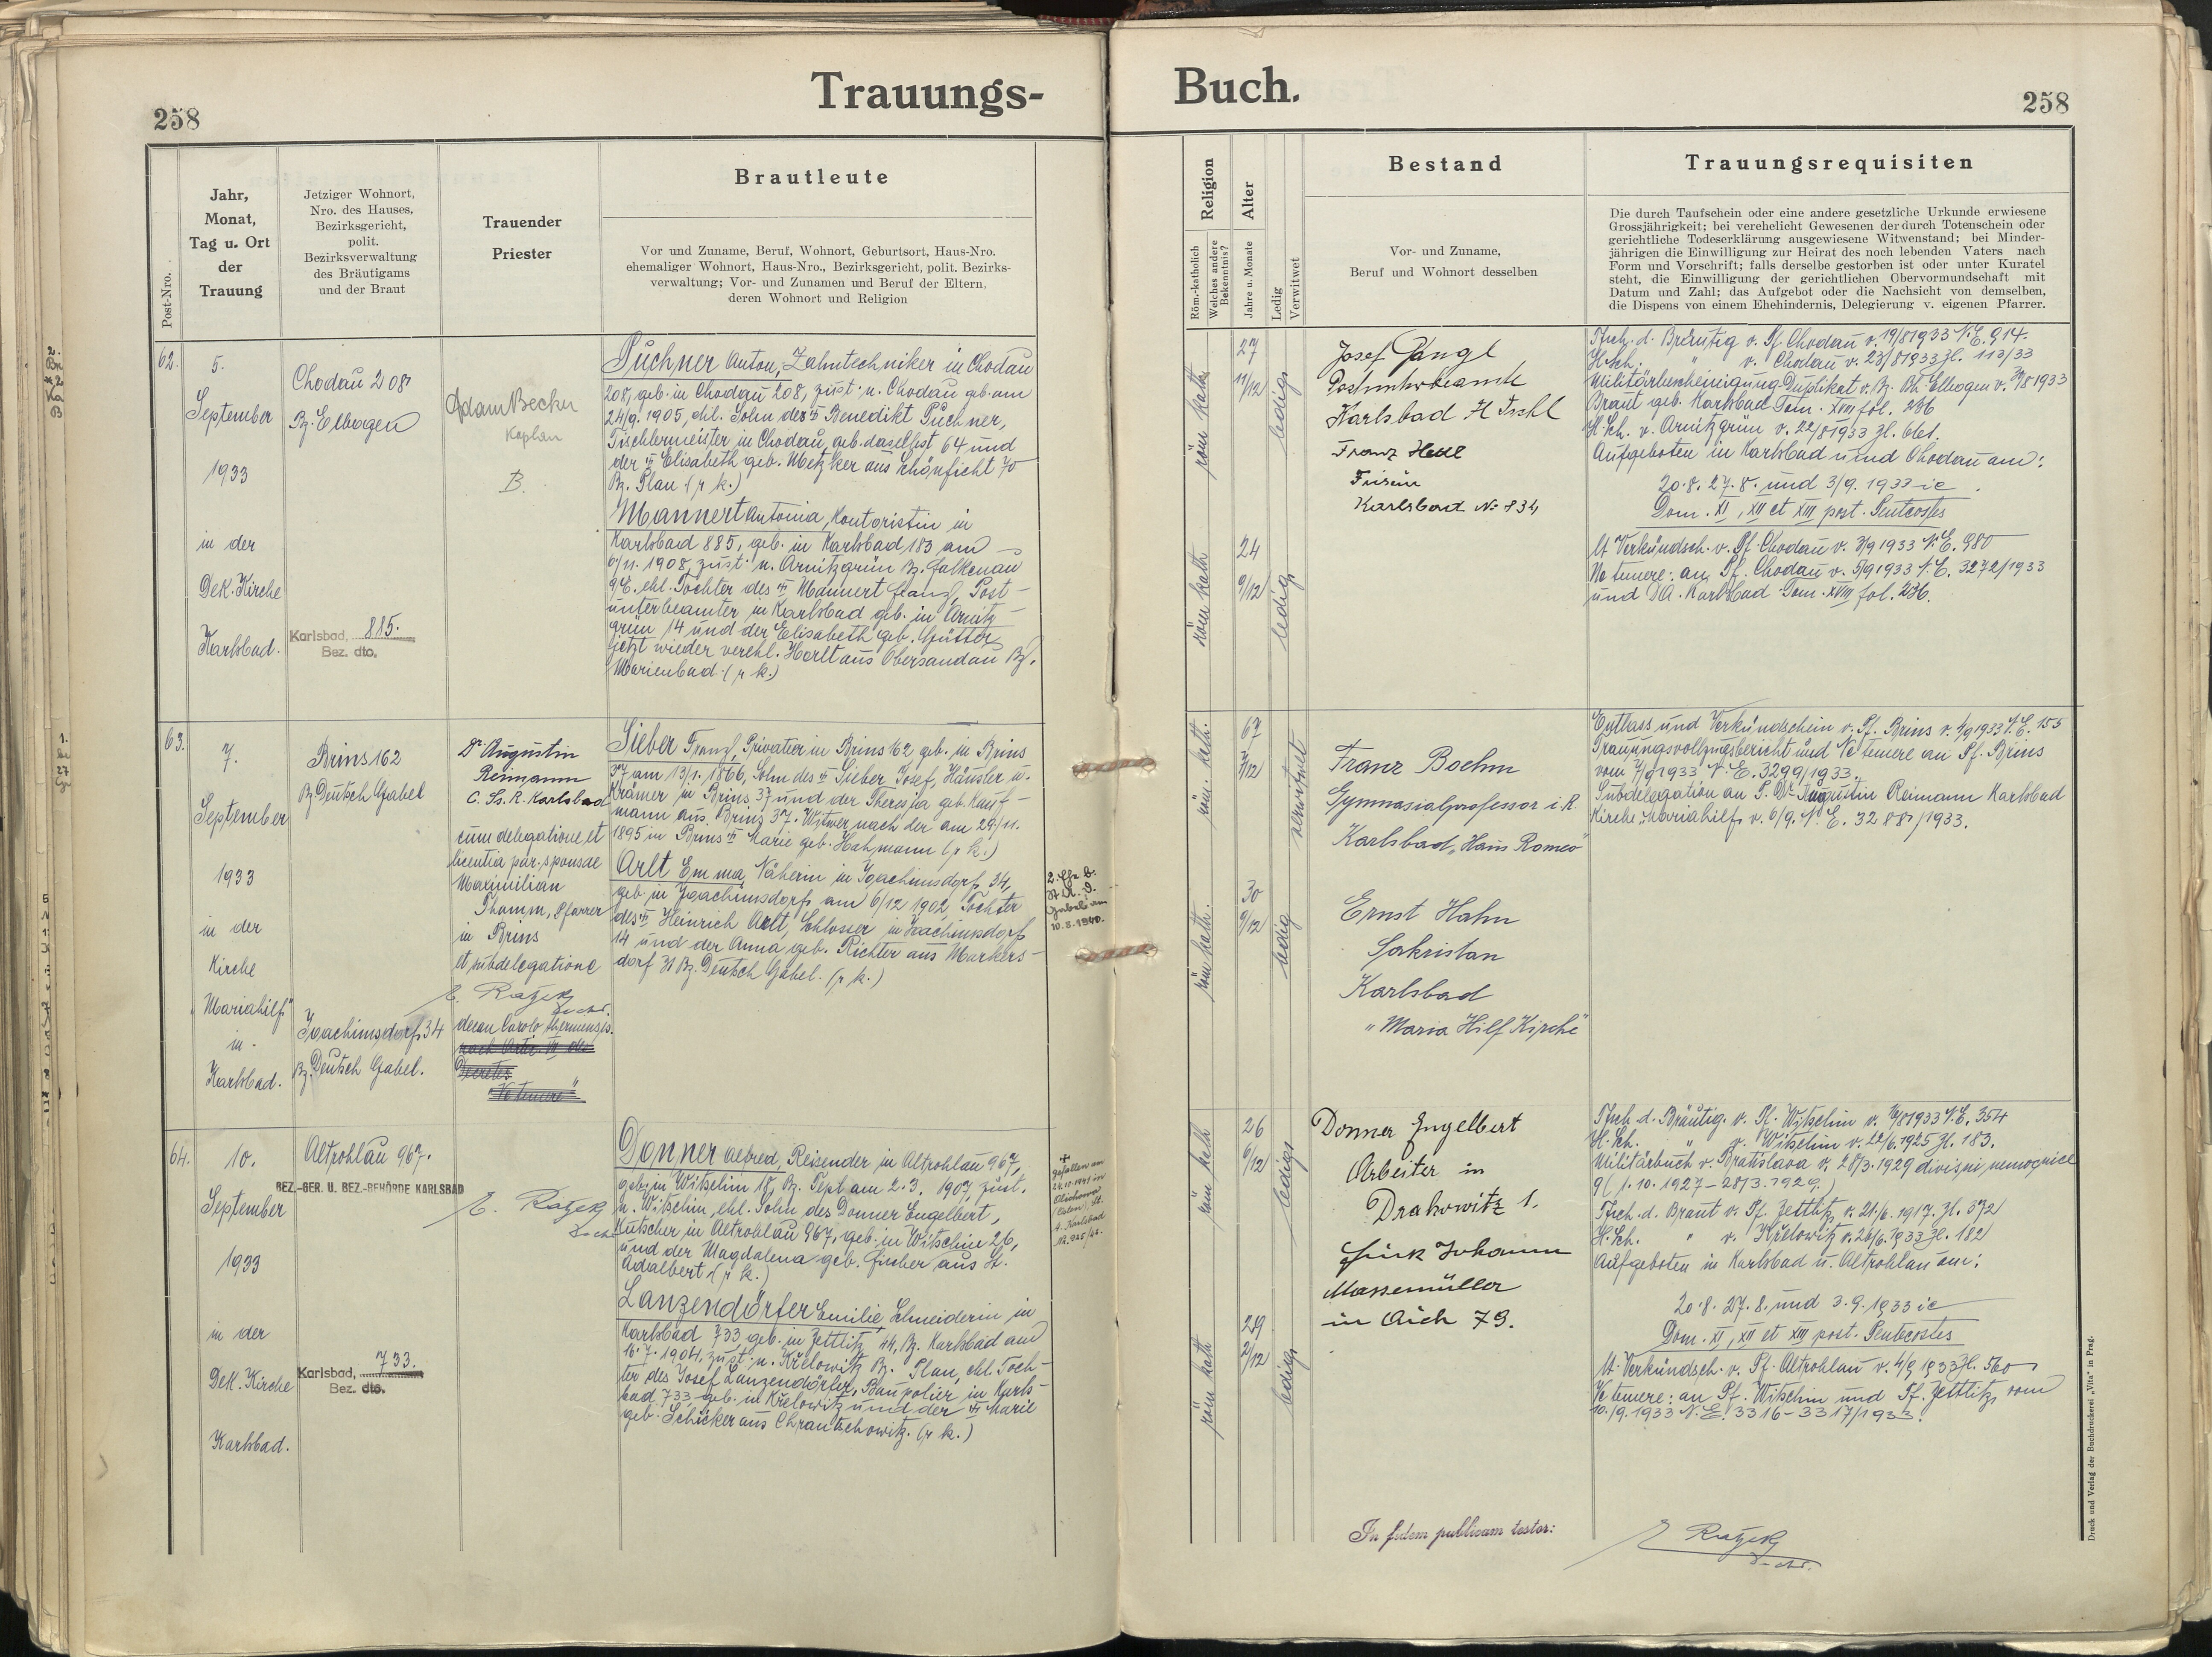 258
Trauungs-
Post-Nro.
Jahr,
Monat,
Tag u. Ort
der
Trauung
Jetziger Wohnort,
Nro. des Hauses,
Bezirksgericht,
polit.
Bezirksverwaltung
des Bräutigams
und der Braut
Trauender
Priester
Brautleute
Vor und Zuname, Beruf, Wohnort, Geburtsort, Haus-Nro.
ehemaliger Wohnort, Haus-Nro., Bezirksgericht, polit. Bezirks-
verwaltung; Vor- und Zunamen und Beruf der Eltern,
deren Wohnort und Religion
62.
5.
September
1933
in der
Dek. Kirche
Karlsbad.
Chodau 208
Bz. Elbogen
Karlsbad, 885.
Bez. dto.
Adam Becker
Kaplan
B.
Püchner Anton, Zahntechniker in Chodau
208, geb. in Chodau 208, zust. n. Chodau geb. am
24/9. 1905, ehl. Sohn des Benedikt Püchner,
Tischlermeister in Chodau, geb. daselbst 64 und
der Elisabeth geb. Metzker aus Schönficht 70
Bz. Plan (r. k.)
Mannert Antonia, Kontoristin in
Karlsbad 885, geb. in Karlsbad 183 am
6/11. 1908, zust. n. Arnitzgrün Bz. Falkenau
9/E. ehl. Tochter des Mannert Franz, Post-
unterbeamter in Karlsbad geb. in Arnitz-
grün 14 und der Elisabeth geb. Gütter
jetzt wieder verehl. Horlt aus Obersandau Bz.
Marienbad. (r. k.)
63.
7.
September
1933
in der
Kirche
"Mariahilf"
in
Karlsbad.
Brins 162
Bz. Deutsch Gabel
Joachimsdorf 34
Bz. Deutsch Gabel.
Dr. Augustin
Reimann
C. Ss. R. Karlsbad
cum delegatione et
licentia par. sponsae
Maximilian
Thamm, Pfarrer
in Brins
et subdelegatione
E. Ratzek
Dechant
Sieber Franz, Privatier in Brins 62, geb. in Brins
37 am 13/1. 1866, Sohn des Sieber Josef, Häusler u.
Krämer in Brins 37 und der Theresia geb. Kauf-
mann aus Brins 37. Witwer nach der am 29./11.
1895 in Brins Marie geb. Hahmann (r. k.)
Arlt Emma, Näherin in Joachimsdorf 34,
geb. in Joachimsdorf am 6/12 1902 Tochter
des Heinrich Arlt, Schlosser in Joachimsdorf
14 und der Anna geb. Richter aus Markers-
dorf 31 Bz. Deutsch Gabel. (r. k.)
10.8.1940.
64.
10.
September
1933
in der
Dek. Kirche
Karlsbad.
Altrohlau 967.
BEZ.-GER. U. BEZ.-BEHÖRDE KARLSBAD
Karlsbad, 733.
Bez. dto.
E. Ratzek
Dechant
Donner Alfred, Reisender in Altrohlau 967,
geb. in Witschin 18, Bz. Tepl am 2. 3. 1907, zust.
n. Witschin, ehl. Sohn des Donner Engelbert,
Kutscher in Altrohlau 967, geb. in Witschin 26,
und der Magdalena geb. Fischer aus St.
Adalbert (r. k.)
Lanzendörfer Emilie, Schneiderin in
Karlsbad 733 geb. in Zettlitz 44, Bz. Karlsbad am
16. 7. 1904, zust. n. Křelowitz Bz. Plan, ehl. Toch-
ter des Josef Lanzendörfer, Baupolier in Karls-
bad 733 geb. in Křelowitz und der Marie
geb. Schicker aus Chrantschowitz. (r. k.)
gefallen am
Buch.
258
Religion
Röm.-katholisch
Welches andere
Bekenntnis?
Alter
Jahre u. Monate
Ledig
Verwitwet
Bestand
Vor- und Zuname,
Beruf und Wohnort desselben
Trauungsrequisiten
Die durch Taufschein oder eine andere gesetzliche Urkunde erwiesene
Grossjährigkeit; bei verehelicht Gewesenen der durch Totenschein oder
gerichtliche Todeserklärung ausgewiesene Witwenstand; bei Minder-
jährigen die Einwilligung zur Heirat des noch lebenden Vaters nach
Form und Vorschrift; falls derselbe gestorben ist oder unter Kuratel
steht, die Einwilligung der gerichtlichen Obervormundschaft mit
Datum und Zahl; das Aufgebot oder die Nachsicht von demselben,
die Dispens von einem Ehehindernis, Delegierung v. eigenen Pfarrer.
röm. kath.
27
11/12
ledig
röm. kath.
24
9/12
ledig
Josef Gangl
Postunterbeamte
Karlsbad H. Ischl
Franz Hell
Karlsbad No 834
Tfsch. d. Bräutig v. Pf. Chodau v. 19/8 1933 N.E. 914.
H.Sch. " v. Chodau v. 23/8 1933 Zl. 113/33
Militärbescheinigung Duplikat v. Bz. Bh. Elbogen v. 8 1933
Braut geb. Karlsbad Tom. XVIII fol. 236
H.Sch. v. Arnitzgrün v. 22/8 1933 Zl. 661.
Aufgeboten in Karlsbad und Chodau am:
20. 8. 27. 8. und 3/9. 1933 ie
Dom. XI, XII et XIII post. Pentecostes
lt. Verkündsch. v. Pf. Chodau v. 3/9 1933 N.E. 980
Ne temere: an Pf. Chodau v. 5/9 1933 N.E. 3272/1933
und DA. Karlsbad Tom. XVIII fol. 236.
röm. kath.
67
7/12
verwitwet
röm. kath.
30
9/12
ledig
Franz Boehm
Gymnasialprofessor i. R.
Karlsbad "Haus Romeo"
Ernst Hahn
Sakristan
Karlsbad
"Maria Hilf Kirche"
Entlass und Verkündschein v. Pf. Brins v. 4/9 1933 N.E. 155
Trauungsvollzugsbericht und Ne temere an Pf. Brins
vom 7/9 1933 N.E. 3299/1933.
Subdelegation an P. Dr. Augustin Reimann Karlsbad
Kirche "Mariahilf" v. 6/9. N.E. 3288/1933.
röm. kath
26
6/12
ledig
röm. kath
29
2/12
ledig
Donner Engelbert
Arbeiter in
Drahowitz 1.
Fürk Johann
Massemüller
in Aich 79.
Tfsch. d. Bräutig. v. Pf. Witschin v. 8 1933 N.E. 354
H.Sch. " v. Witschin v. 22/6. 1925 Zl. 183.
Militärbuch v. Bratislava v. 28/3. 1929
9 (1. 10. 1927 - 28/3. 1929.)
Tfsch. d. Braut v. Pf. Zettlitz v. 21./6. 1917. Zl. 372
H.Sch. " v. Křelowitz v. 26/6. 1933 Zl. 182
Aufgeboten in Karlsbad u. Altrohlau am:
20. 8. 27. 8. und 3. 9. 1933 ie
Dom. XI, XII et XIII post. Pentecostes
lt. Verkündsch. v. Pf. Altrohlau v. 4/9 1933 Zl. 560
Ne temere: an Pf. Witschin und Pf. Zettlitz vom
10./9. 1933 N.E. 3316-3317/1933.
In fidem publicam testor:
E. Ratzek
Dechant
Druck und Verlag der Buchdruckerei „Vita" in Prag.